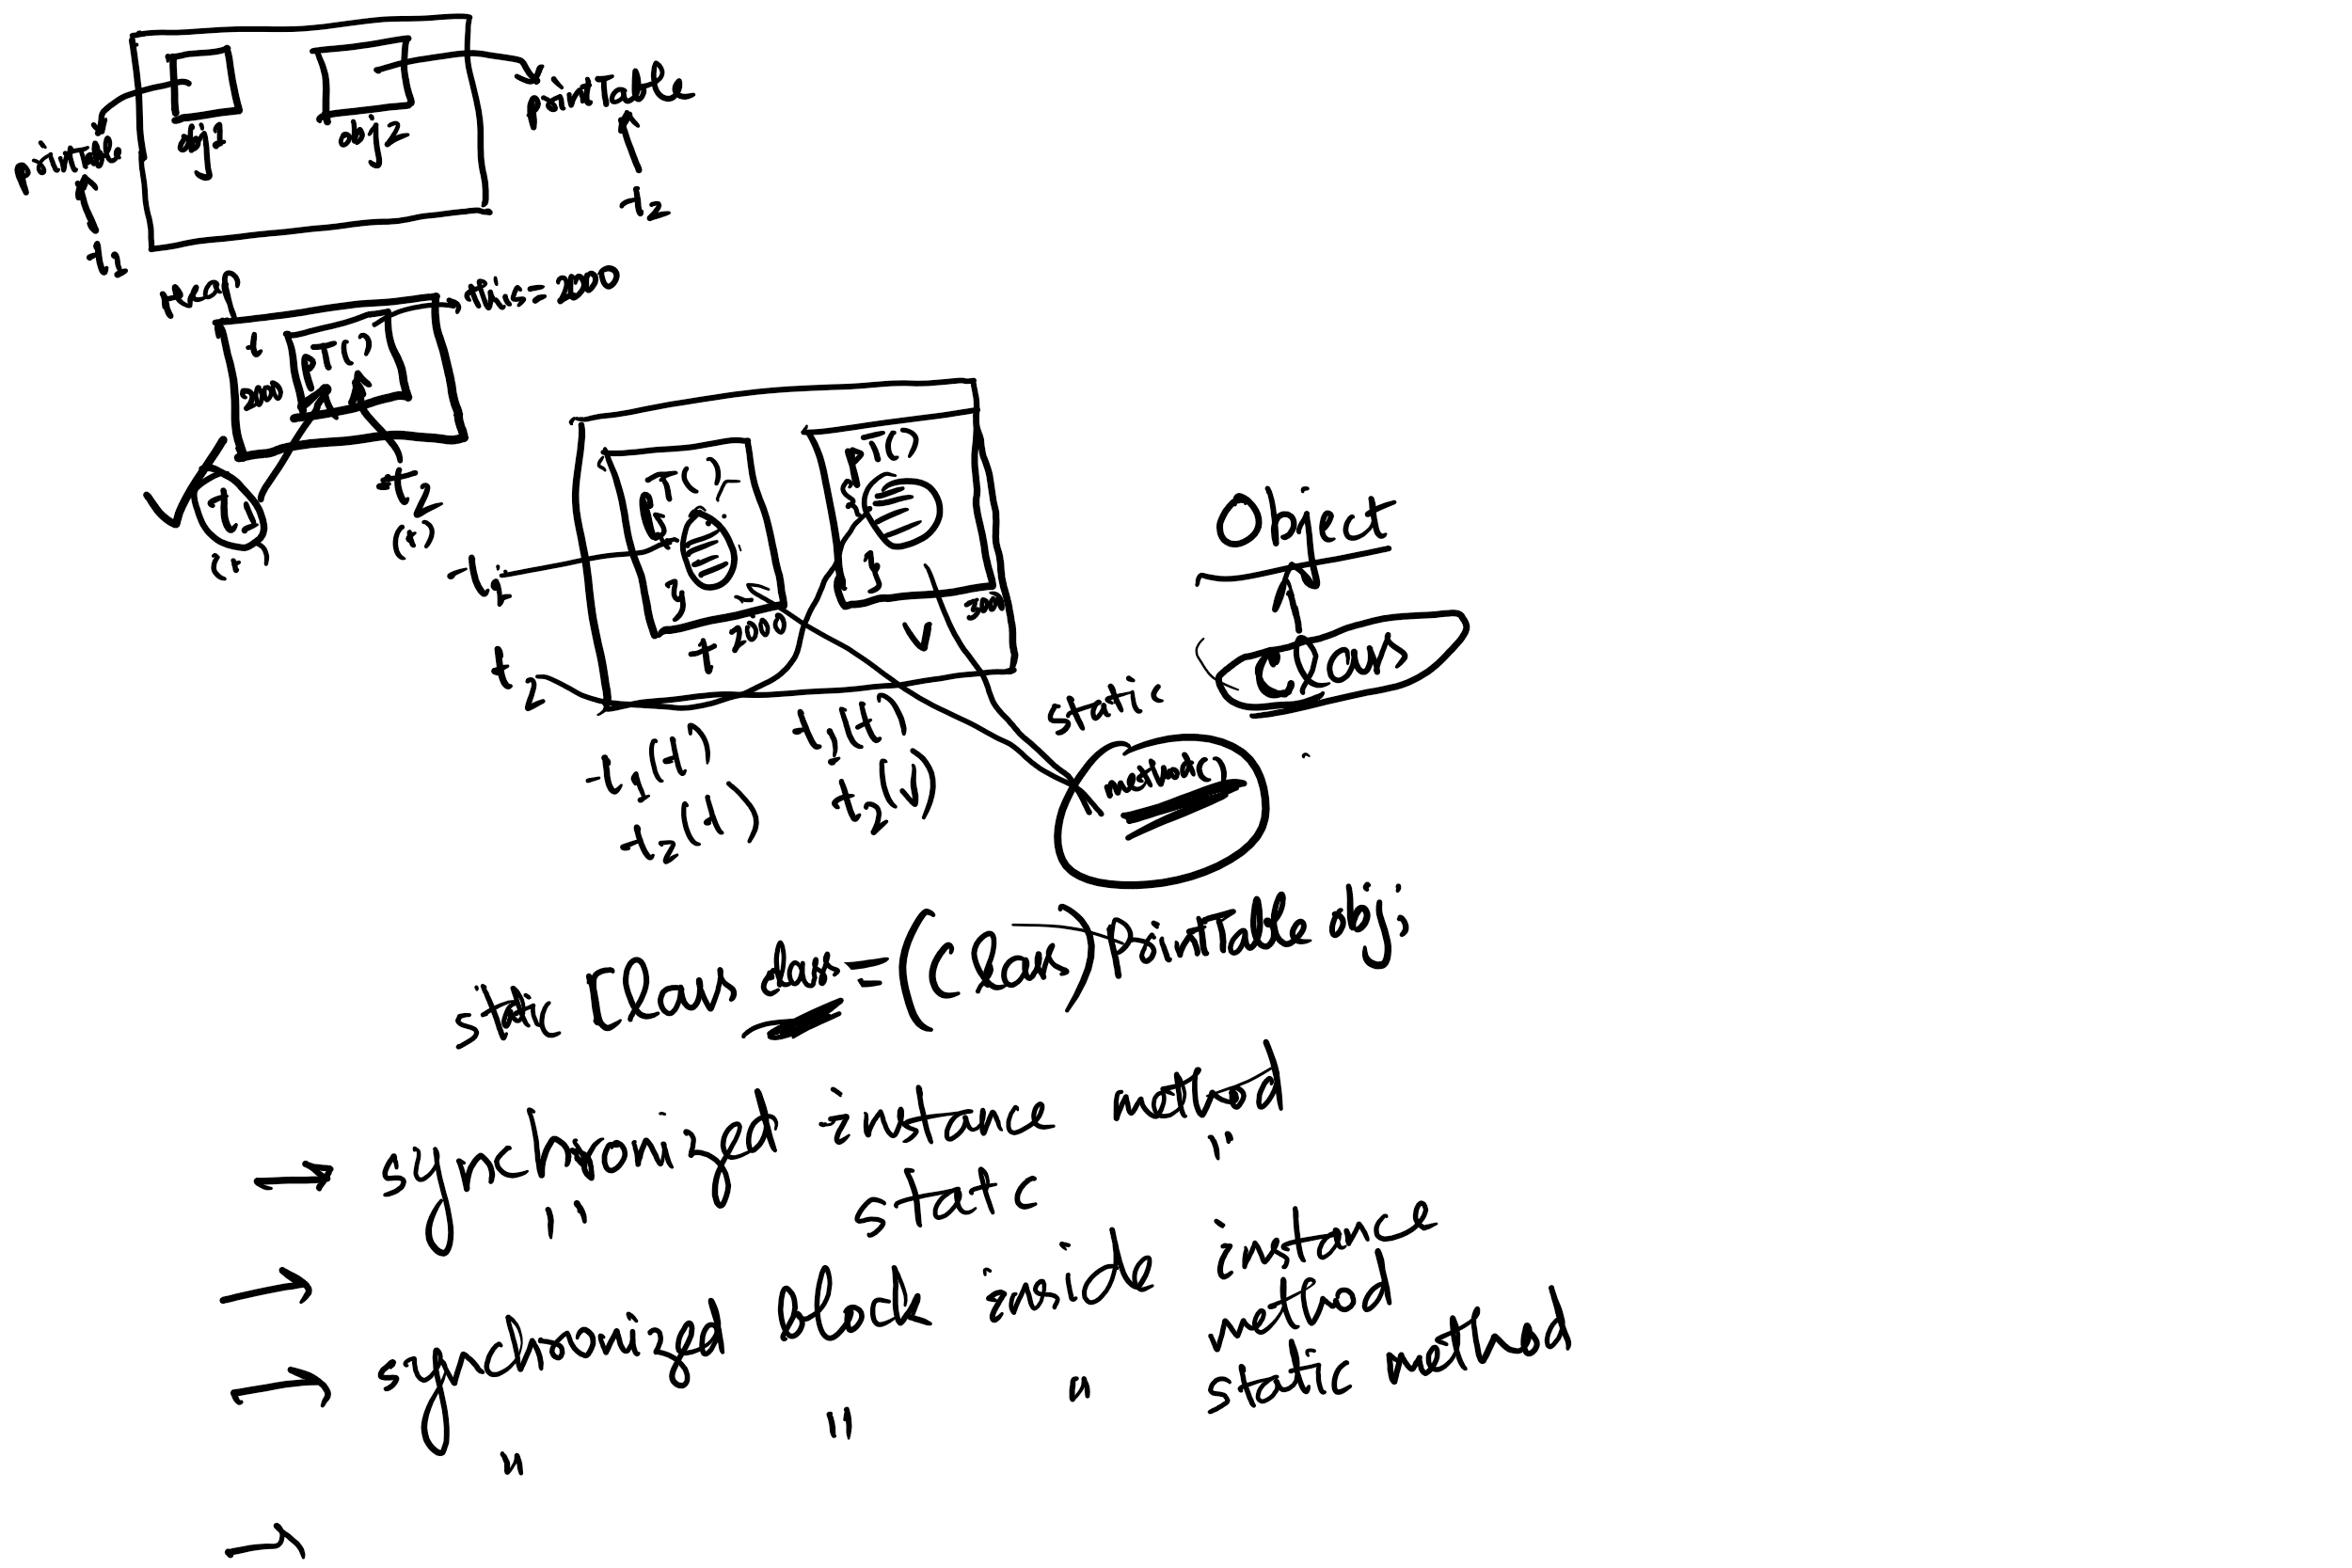 obj1
obj2
printTable
printTable
t1
t2
Head
this = 2000
i
PT()
2000
t1
t2
()
PT()
{
}
PT()
{
}
t1
2000
3000
t
v
t2
Object
Class
static
method()
t1(t)
t2(t)
t1(t)
t2(v)
static Class class = (Class) PrintTable obj;
→ synchronized instance method
" static "
→
synchronized block inside instance method
→
" " " static method
→